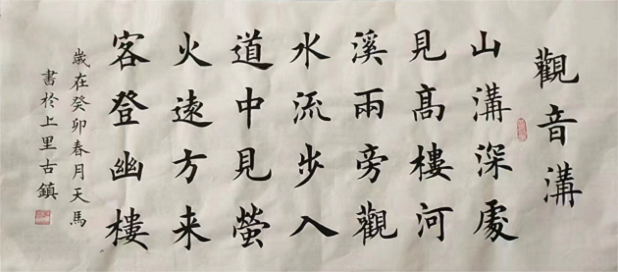 觀音溝
山溝深處
見高樓河
溪兩旁觀
水流步入
道中見螢
火遠方来
客登幽樓
歲在癸卯春月天馬
書於上里古鎮